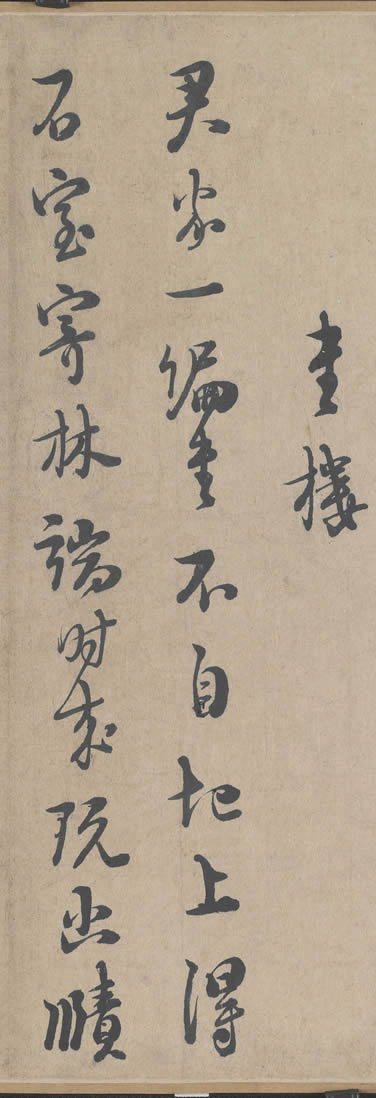 書樓
君家一編書不自圯上得
石室寄林端時來玩幽賾